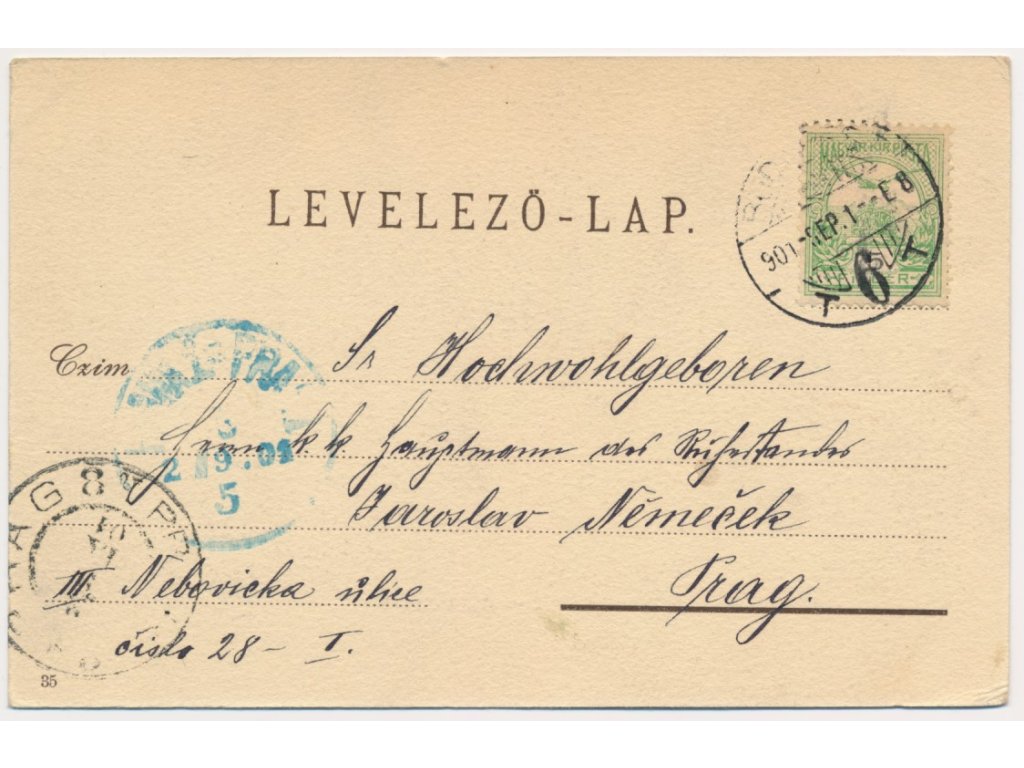 LEVELEZŐ-LAP.
MAGYAR KIR. POSTA
901 SEP. 1 E 8
6
T T
Czim
Sr Hochwohlgeboren
Herrn k k Hauptmann des Ruhestandes
Jaroslav Němeček
Prag.
III Nebovicka ulice
čislo 28 - I.
2 9.01
5
PRAG 8
35